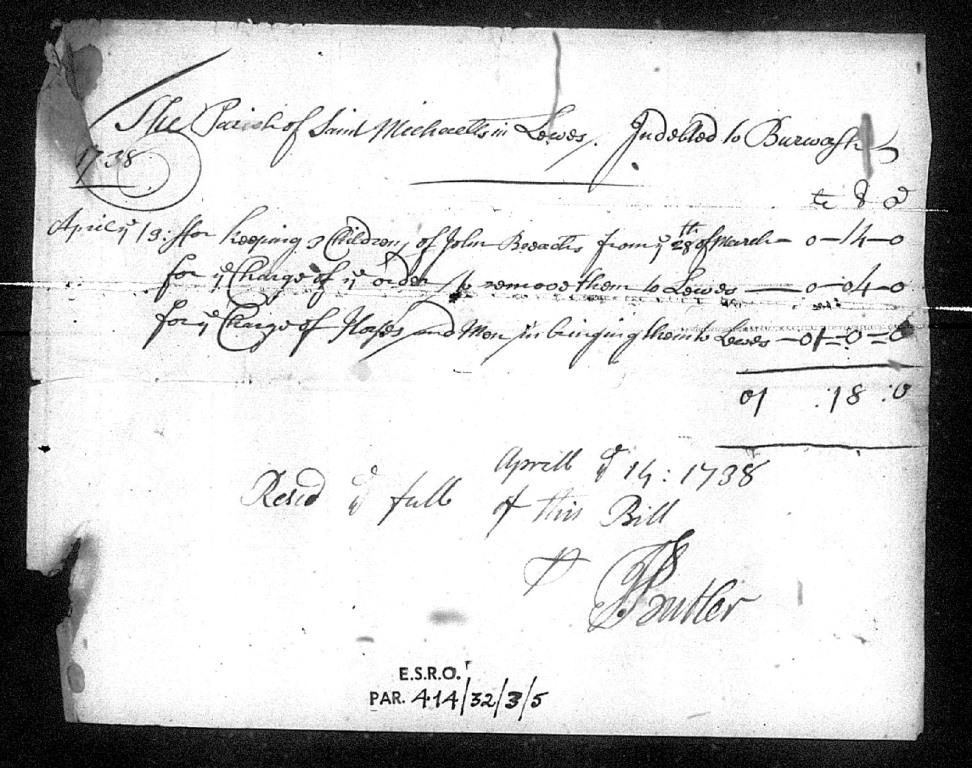 The Parish of Saint Michaells in Lewes, Indebted to Burwash
1738
£ S d
April ye 13: ffor keeping 3 Children of John Breacths from ye 28th of March - 0-14-0
for ye Charge of ye order to remoove them to Lewes - 0-04-0
for ye Charge of Horses and Men in bringing them to Lewes - 01=0=0
01 :18 :0
Aprill ye 14: 1738
Resd ye full of this Bill
Butler
E.S.R.O.
PAR. 414/32/3/5